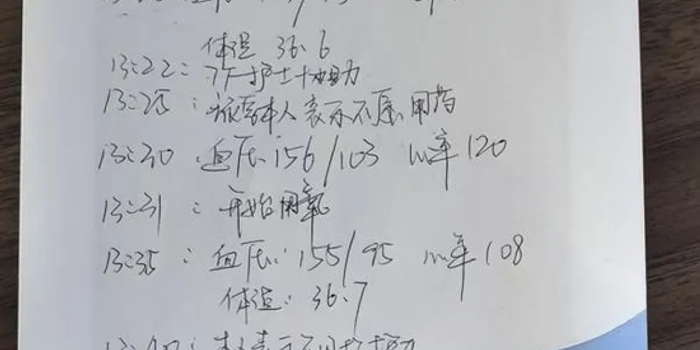 体温 36.6
13:22: 护士协助
13:25: 旅客本人表示不愿用药
13:30 血压:156/103 心率120
13:31: 开始用氧
13:35: 血压:155/95 心率108
体温: 36.7